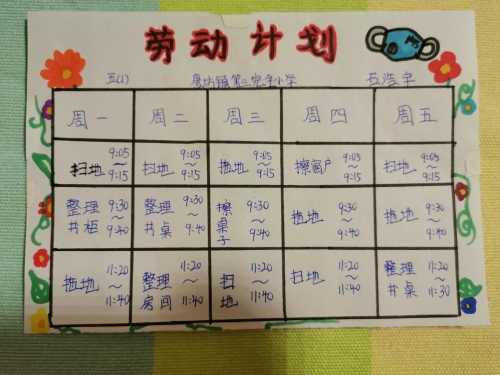 劳动计划
五(1) 唐坊镇第三完全小学 石浩宇
周一 周二 周三 周四 周五
扫地 9:05~9:15 扫地 9:05~9:15 拖地 9:05~9:15 擦窗户 9:05~9:15 扫地 9:05~9:15
整理书柜 9:30~9:40 整理书桌 9:30~9:40 擦桌子 9:30~9:40 拖地 9:30~9:40 拖地 9:30~9:40
拖地 11:20~11:40 整理房间 11:20~11:40 扫地 11:20~11:40 扫地 11:20~11:40 整理书桌 11:20~11:30